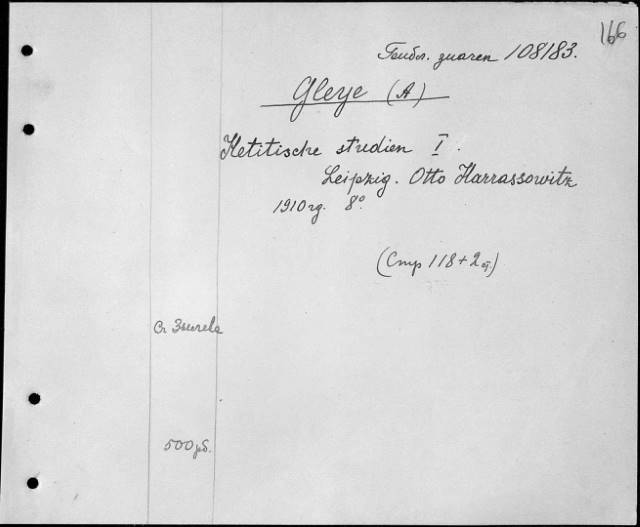 166
108183.
Gleye (A)
Hetitische studien I.
Leipzig. Otto Harrassowitz
1910 8°
(Стр 118+2)
500 рб.